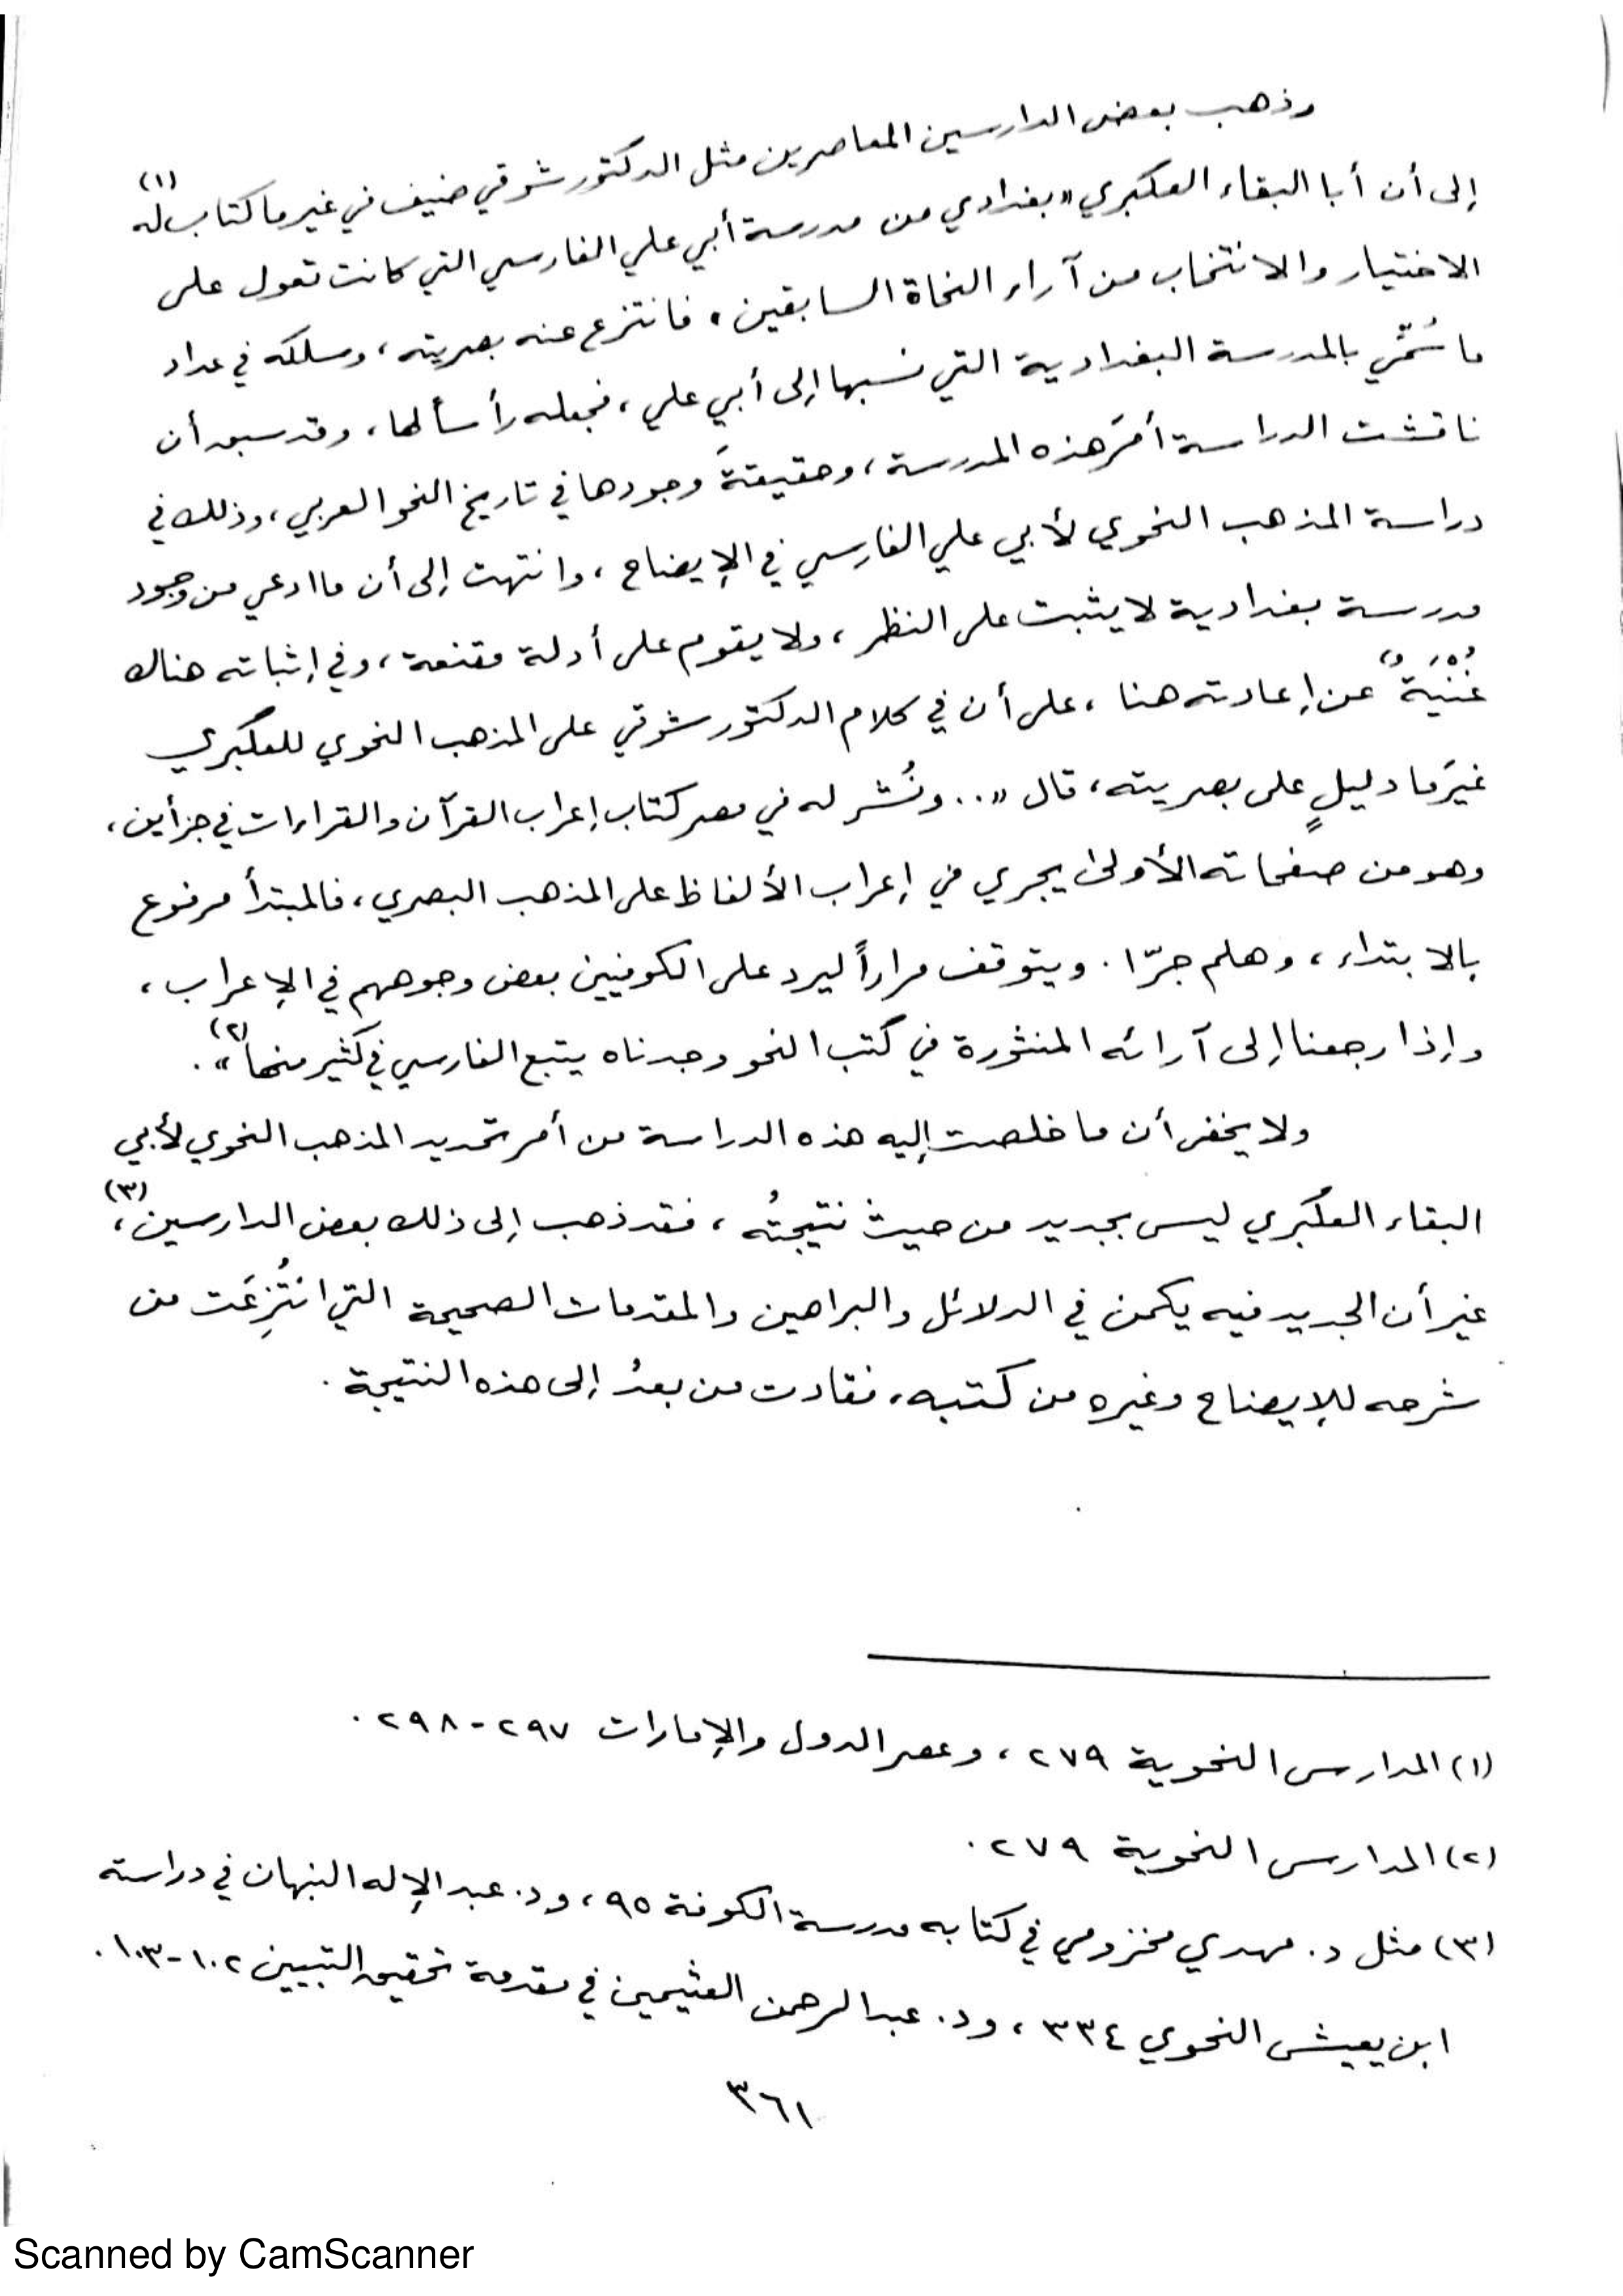 وذهب بعض الدارسين المعاصرين مثل الدكتور شوقي ضيف في غير ما كتاب له (١)
إلى أن أبا البقاء العكبري «بغدادي من مدرسة أبي علي الفارسي التي كانت تعول على
الاختيار والانتخاب من آراء النحاة السابقين. فانتزع عنه بصريته، وسلكه في عداد
ما سُمِّي بالمدرسة البغدادية التي نسبها إلى أبي علي، فجعله رأساً لها، وقد سبق أن
ناقشت الدراسة أمرَ هذه المدرسة، وحقيقةَ وجودها في تاريخ النحو العربي، وذلك في
دراسة المذهب النحوي لأبي علي الفارسي في الإيضاح، وانتهت إلى أن ما ادعي من وجود
مدرسة بغدادية لا يثبت على النظر، ولا يقوم على أدلة مقنعة، وفي إثباته هناك
غُنْيَةٌ عن إعادته هنا، على أن في كلام الدكتور شوقي على المذهب النحوي للعكبري
غيرَ ما دليلٍ على بصريته، قال «.. ونُشر له في مصر كتاب إعراب القرآن والقراءات في جزأين،
وهو من صفحاته الأولى يجري في إعراب الألفاظ على المذهب البصري، فالمبتدأ مرفوع
بالابتداء، وهلم جرّا. ويتوقف مراراً ليرد على الكوفيين بعض وجوههم في الإعراب،
وإذا رجعنا إلى آرائه المنثورة في كتب النحو وجدناه يتبع الفارسي في كثير منها» (٢).
ولا يخفى أن ما خلصت إليه هذه الدراسة من أمر تحديد المذهب النحوي لأبي
البقاء العكبري ليس بجديد من حيث نتيجتُه، فقد ذهب إلى ذلك بعض الدارسين (٣)،
غير أن الجديد فيه يكمن في الدلائل والبراهين والمقدمات الصحيحة التي انتُزِعَت من
شرحه للإيضاح وغيره من كتبه، فقادت من بعدُ إلى هذه النتيجة.
(١) المدارس النحوية ٢٧٩، وعصر الدول والإمارات ٢٩٧-٢٩٨.
(٢) المدارس النحوية ٢٧٩.
(٣) مثل د. مهدي مخزومي في كتابه مدرسة الكوفة ٩٥، ود. عبد الإله النبهان في دراسته
ابن يعيش النحوي ٣٣٤، ود. عبد الرحمن العثيمين في مقدمة تحقيق التبيين ١٠٢-١٠٣.
٣٦١
Scanned by CamScanner